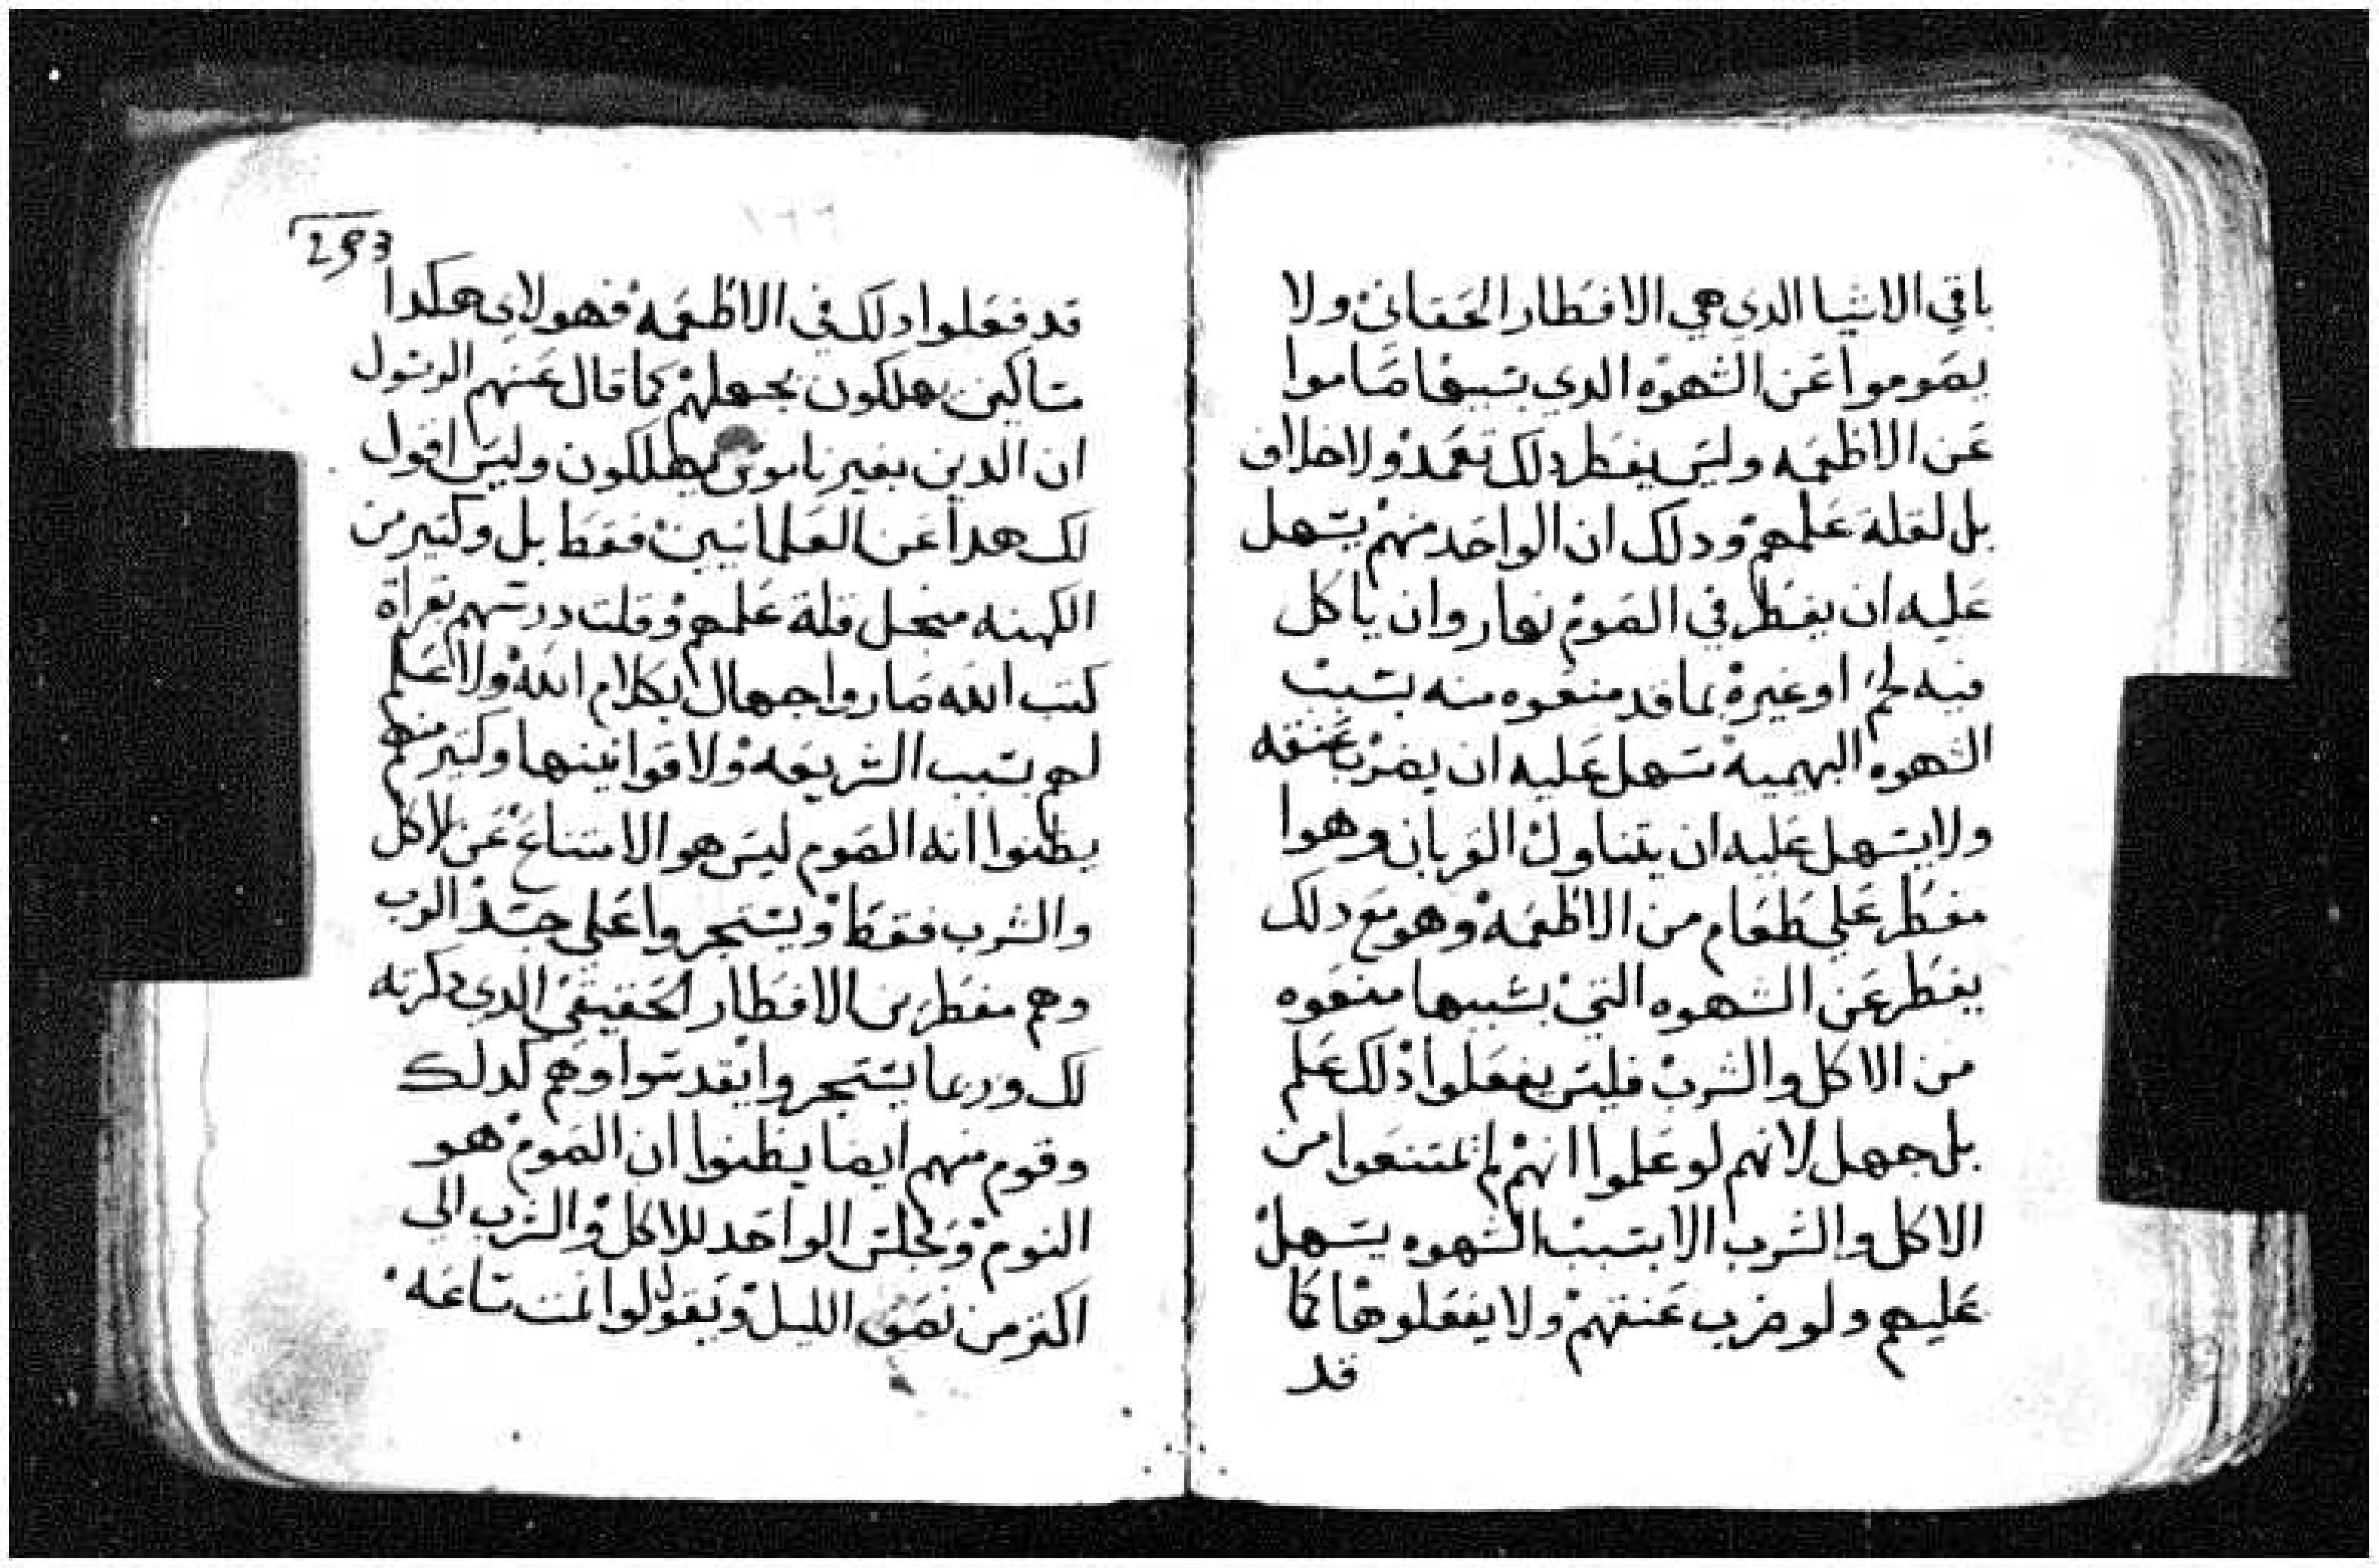 باقي الاشيا الدي هي الافطار الحقاني ولا
يصوموا عن الشهوه الدي بسببها صاموا
عن الاطعمه وليس يفطر دلك تعمد ولا خلاف
بل لقلة علمهم ودلك ان الواحد منهم يسهل
عليه ان يفطر في الصوم نهار وان ياكل
فيه لحم او غيره مما قد منعوه منه بسبب
الشهوه البهميه سهل عليه ان يضرب عنقه
ولا يسهل عليه ان يتناول القربان وهوا
مفطر علي طعام من الاطعمه وهو مع دلك
يفطر عن الشهوه التي بسببها منعوه
من الاكل والشرب فليس يفعلوا دلك علم
بل جهل لانهم لو علموا انهم لم تمتنعوا من
الاكل والشرب الا بسبب الشهوه يسهل
عليهم ولو ضرب عنقهم ولا يفعلوها كما
قد
293
١٦٦
قد فعلوا دلك في الاطعمه فهولاي هكدا
مساكين يهلكون بجهلهم كما قال عنهم الرسول
ان الدين بغير ناموس يهلكون وليس اقول
لك هدا عن العلمانيين فقط بل وكتير من
الكهنه من قلة علمهم وقلت درسهم بقراة
كتب الله صاروا جهال بكلام الله ولا علم
لهم بسبب الشريعه ولا قوانينها وكتير منهم
يظنوا انه الصوم ليس هو الامتناع عن الاكل
والشرب فقط ويستجروا علي جسد الرب
وهم مفطرين الافطار الحقيقي الدي دكرته
لك وربما يستجروا يقدسوا وهم كدلك
وقوم منهم ايضا يظنوا ان الصوم هو
النوم ويجلس الواحد للاكل والشرب الي
اكتر من نصف الليل ويقولوا نمت ساعه